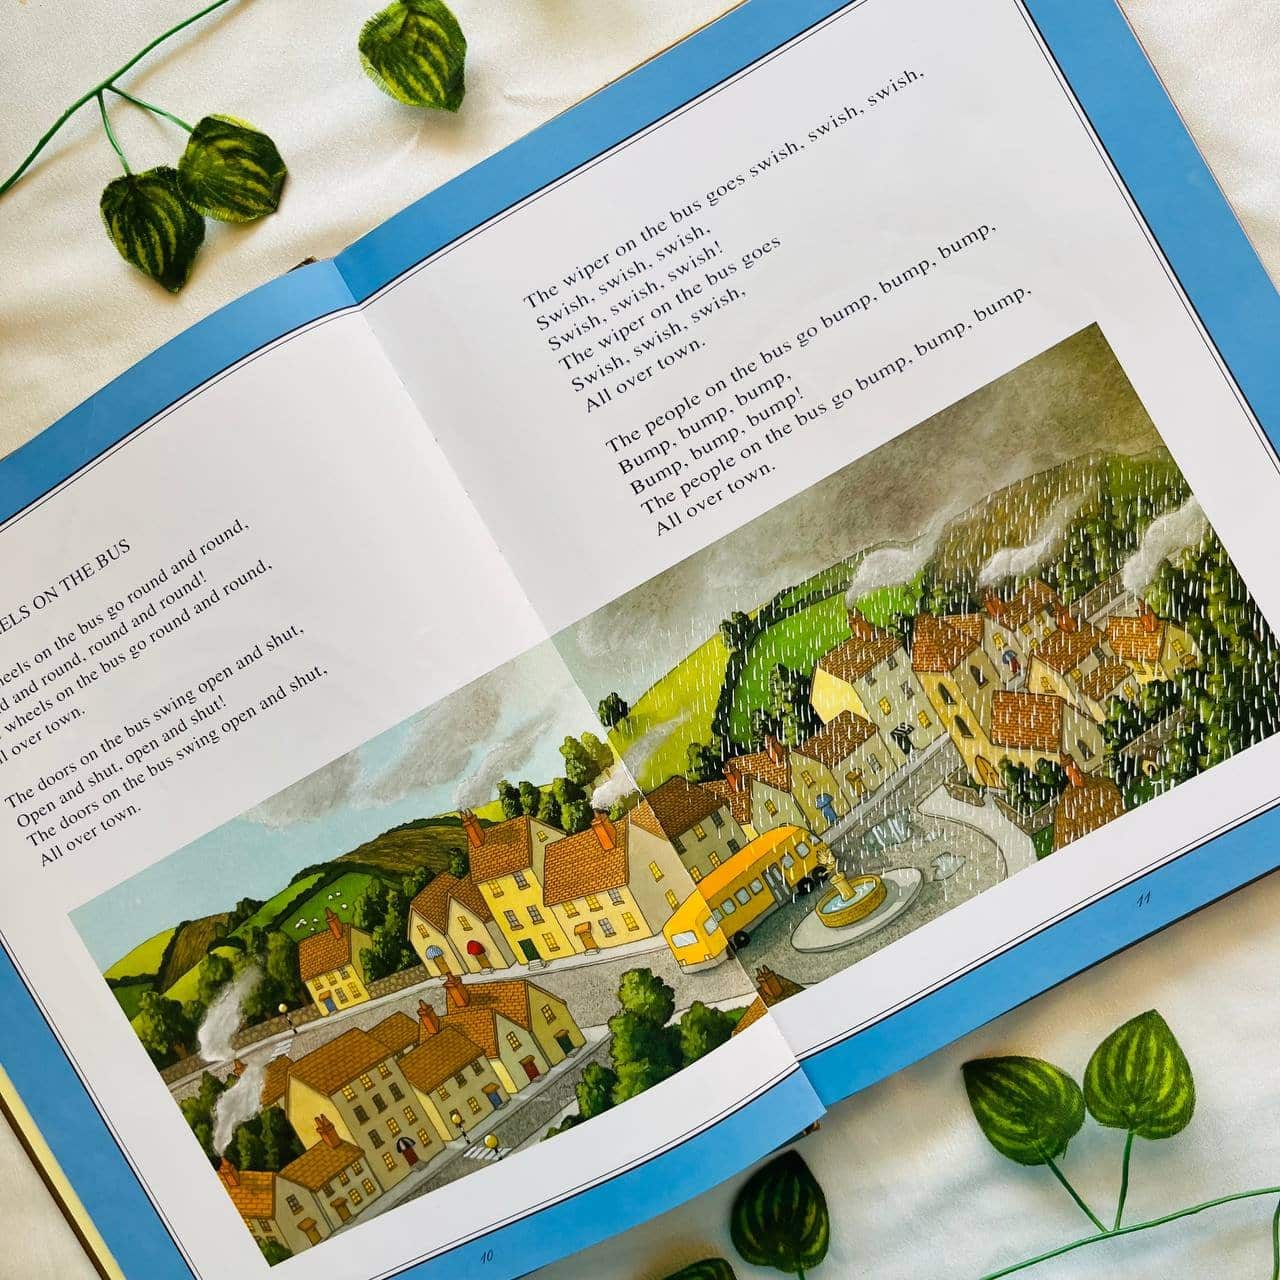 ELS ON THE BUS
eels on the bus go round and round,
d and round, round and round!
wheels on the bus go round and round,
ll over town.
The doors on the bus swing open and shut,
Open and shut, open and shut!
The doors on the bus swing open and shut,
All over town.
10
The wiper on the bus goes swish, swish, swish,
Swish, swish, swish,
Swish, swish, swish!
The wiper on the bus goes
Swish, swish, swish,
All over town.
The people on the bus go bump, bump, bump,
Bump, bump, bump,
Bump, bump, bump!
The people on the bus go bump, bump, bump,
All over town.
11